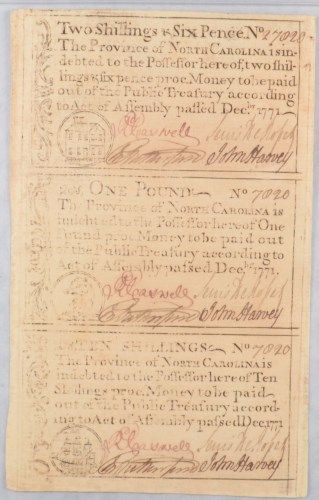 Two Shillings & Six Pence No 27020
The Province of NORTH CAROLINA is in-
debted to the Possessor hereof, two shil-
lings & six pence proc. Money to be paid
out of the Public Treasury according
to Act of Assembly passed Decr. 1771
RCaswell
John Harvey
20s. ONE POUND No 7020
The Province of NORTH CAROLINA IS
indebted to the Possessor here of One
Pound proc. Money to be paid out
of the Public Treasury according to
Act of Assembly passed Decr. 1771.
RCaswell
John Harvey
TEN SHILLINGS No 7020
The Province of NORTH CAROLINA is
indebted to the Possessor here of Ten
Shillings proc. Money to be paid
out of the Public Treasury accord-
ing to Act of Assembly passed Decr. 1771
RCaswell
John Harvey